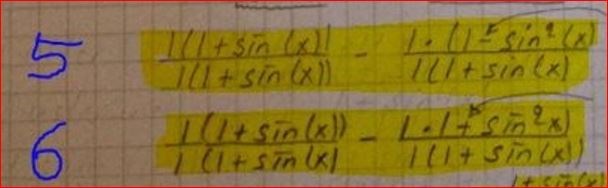 5 1(1+sin(x)) / 1(1+sin(x)) - 1·(1-sin²(x) / 1(1+sin(x)
6 1(1+sin(x)) / 1(1+sin(x) - 1·1+sin²x) / 1(1+sin(x))
1+sin(x)